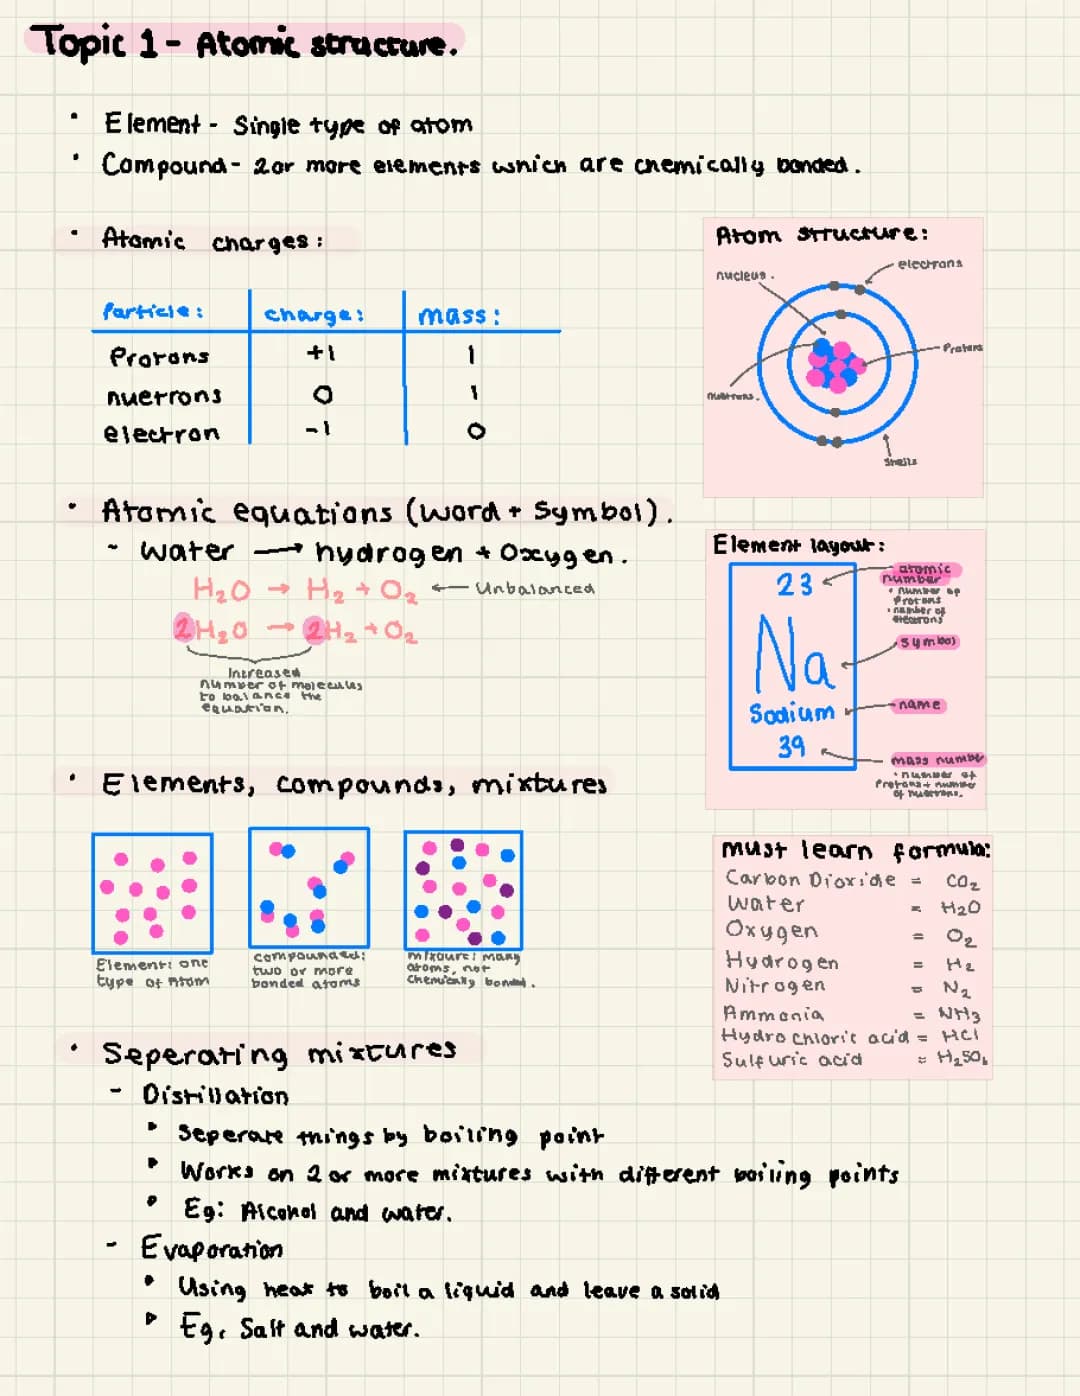 Topic 1 - Atomic structure.
• Element - Single type of atom
• Compound - 2 or more elements which are chemically bonded.
• Atomic charges:
Particle: charge: mass:
Protons +1 1
nuetrons 0 1
electron -1 0
Atom structure:
nucleus.
electrons
Protons
nuetrons.
Shells
• Atomic equations (word + Symbol).
- Water → hydrogen + Oxygen.
H₂O → H₂ + O₂ ← Unbalanced
2H₂O → 2H₂ + O₂
Increased
number of molecules
to balance the
equation.
Element layout:
23
Na
Sodium
39
atomic
number
• number of
Protons
• number of
electrons
symbol
name
mass number
• number of
Protons + number
of nuetrons.
• Elements, compounds, mixtures
Element: one
type of Atom
compounded:
two or more
bonded atoms
mixture: many
atoms, not
chemically bonded.
must learn formula:
Carbon Dioxide = CO₂
Water = H₂O
Oxygen = O₂
Hydrogen = H₂
Nitrogen = N₂
Ammonia = NH₃
Hydrochloric acid = HCl
Sulfuric acid = H₂SO₄
• Seperating mixtures
- Distillation
▸ Seperate things by boiling point
▸ Works on 2 or more mixtures with different boiling points
▸ Eg: Alcohol and water.
- Evaporation
• Using heat to boil a liquid and leave a solid
▸ Eg, Salt and water.